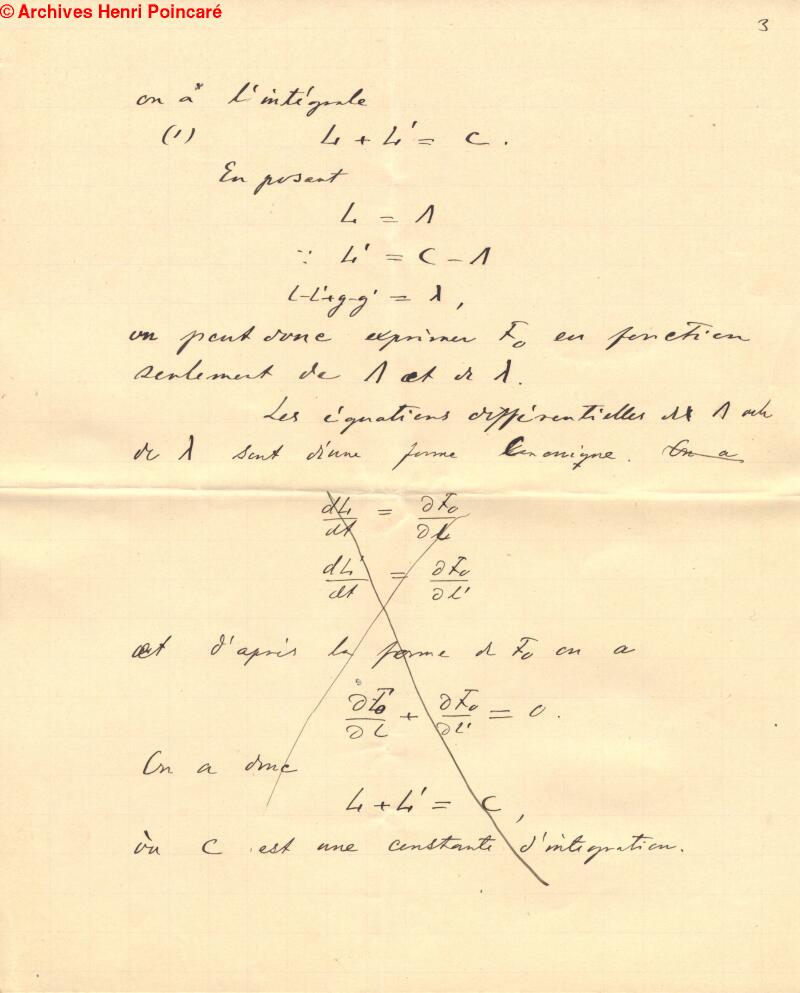 © Archives Henri Poincaré
3
on a l'intégrale
(1) L + L' = C.
En posant
L = Λ
∵ L' = C - Λ
l-l'+g-g' = λ,
on peut donc exprimer F₀ en fonction
seulement de Λ et de λ.
Les équations différentielles de Λ
de λ sont d'une forme canonique. On a
dL/dt = ∂F₀/∂l
dL'/dt = ∂F₀/∂l'
et d'après la forme de F₀ on a
∂F₀/∂l + ∂F₀/∂l' = 0.
On a donc
L + L' = C,
où C est une constante d'intégration.